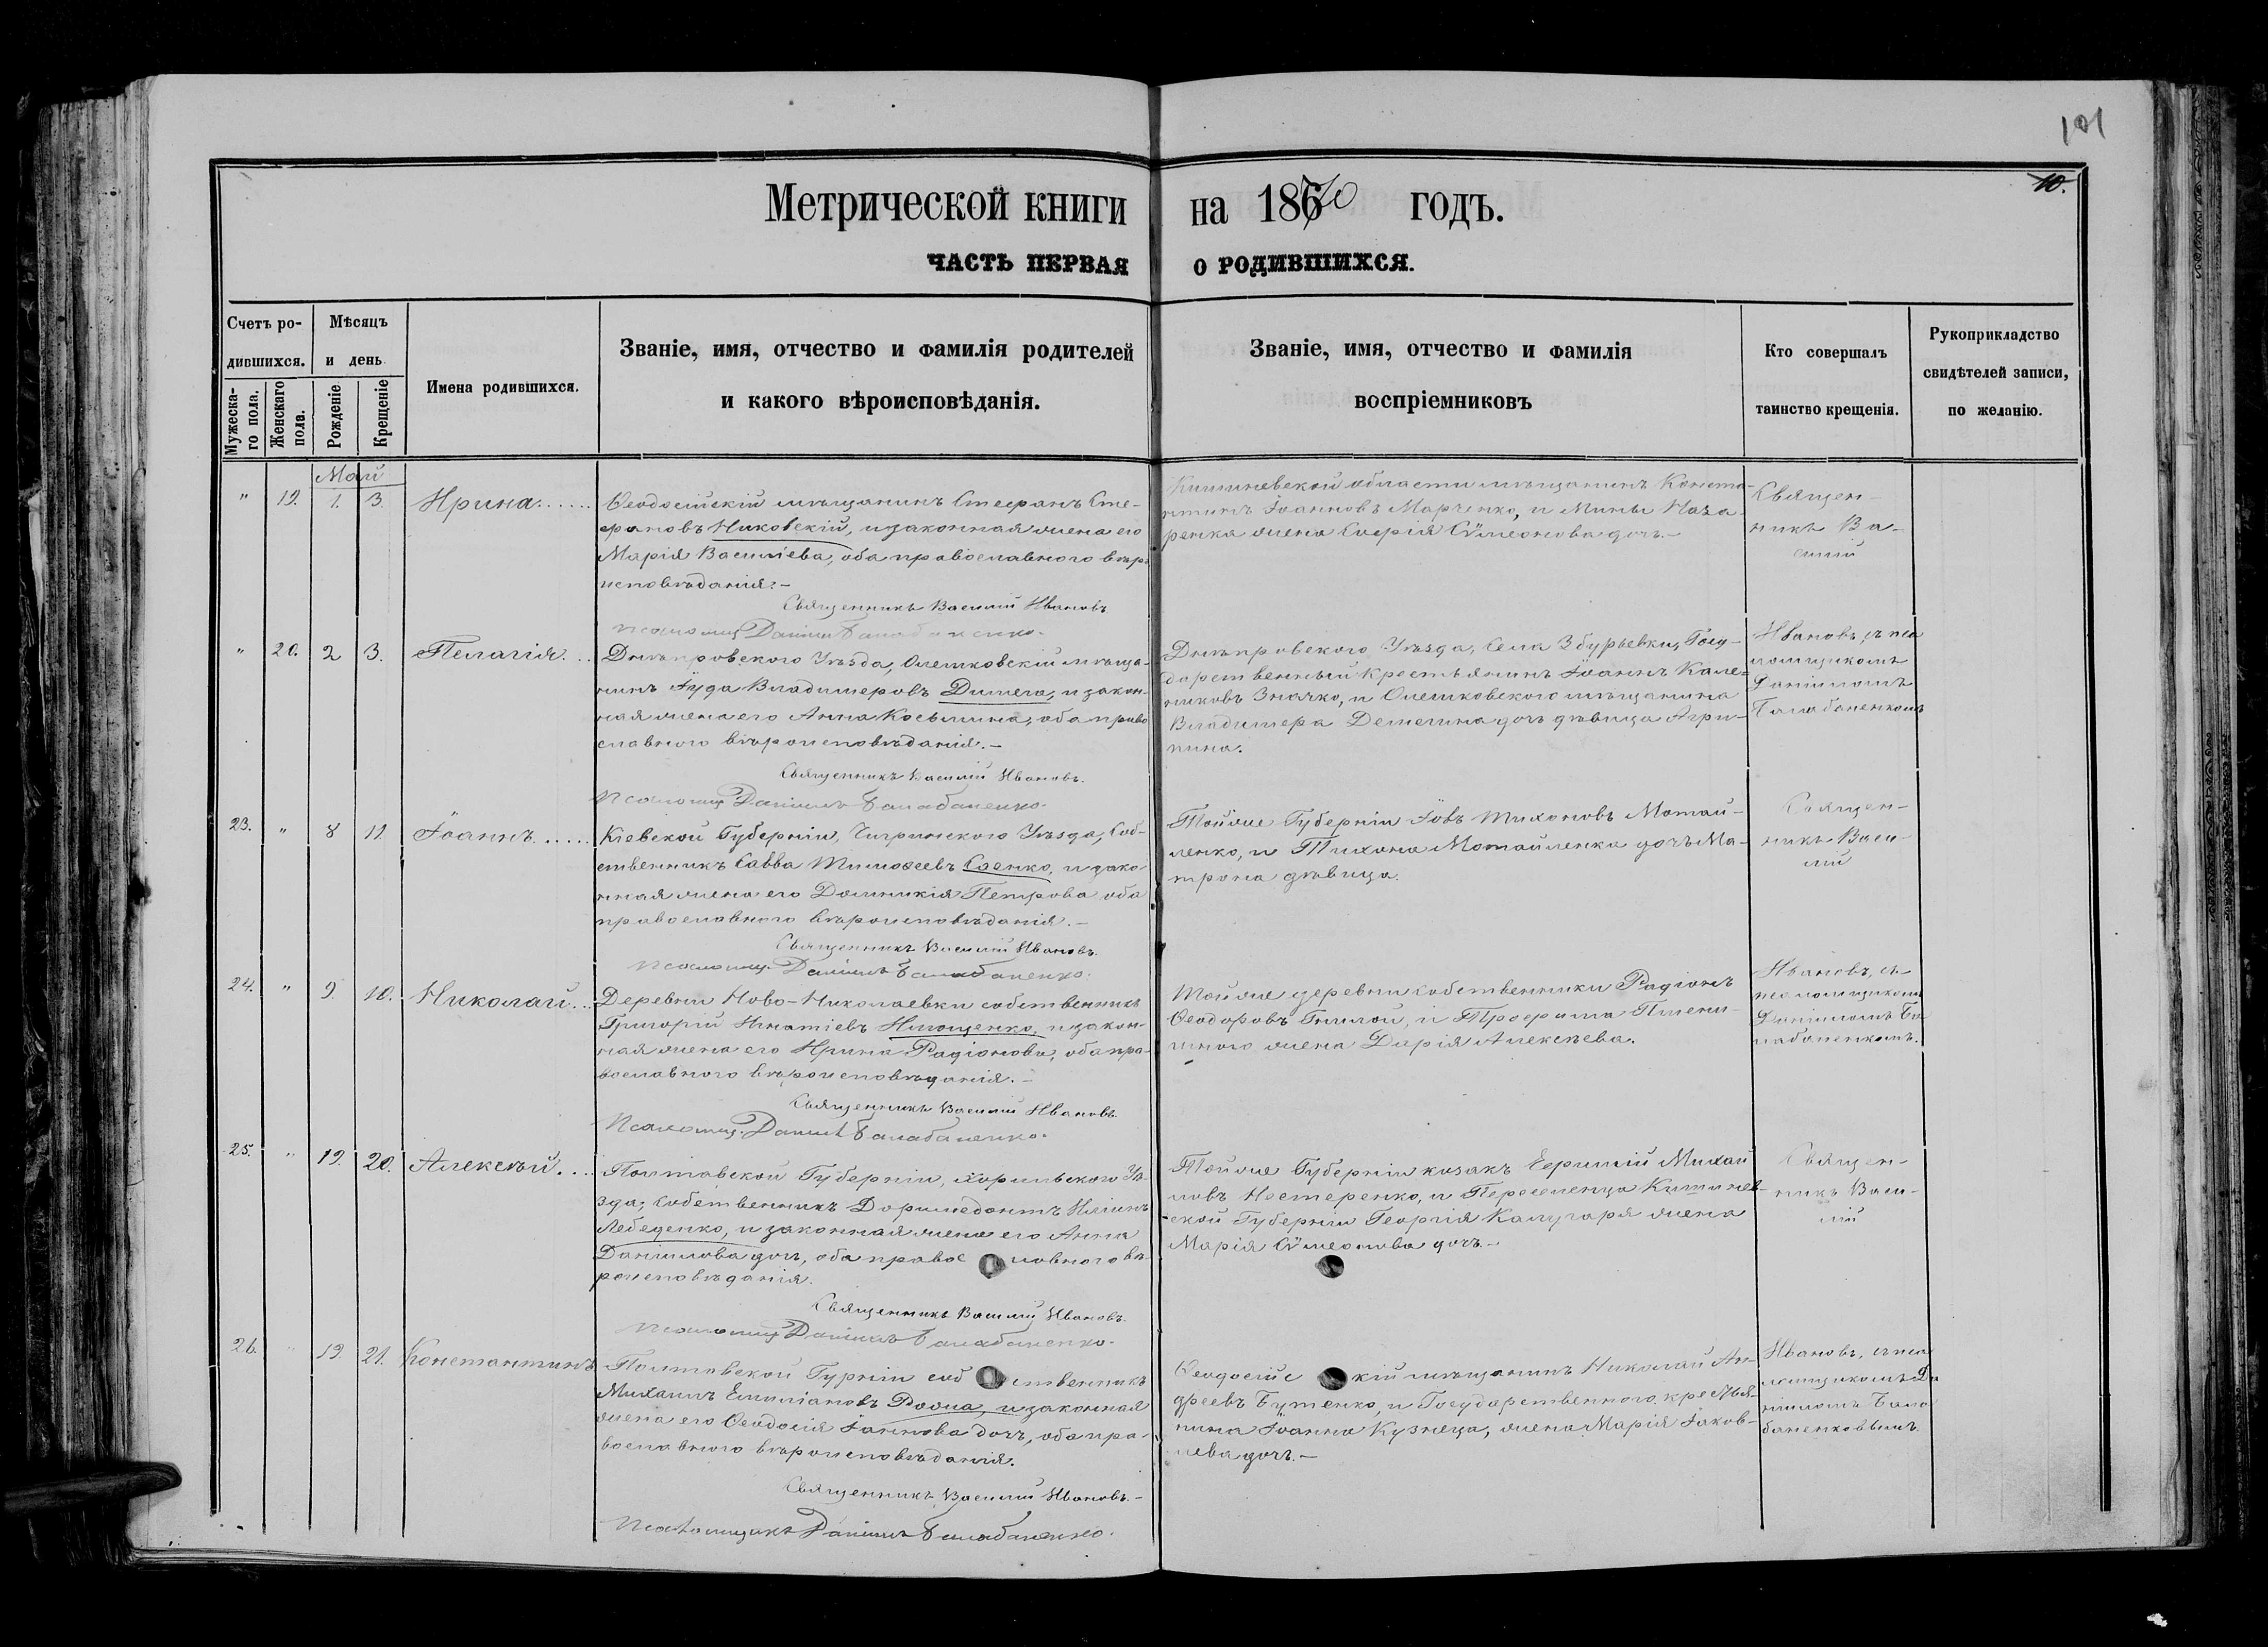 101
10.
Метрической книги на 1870 годъ.
ЧАСТЬ ПЕРВАЯ О РОДИВШИХСЯ.
Счетъ ро-
дившихся.
Мужеска-
го пола.
Женскаго
пола.
Мѣсяцъ
и день
Рожденіе
Крещеніе
Имена родившихся.
Званіе, имя, отчество и фамилія родителей
и какого вѣроисповѣданія.
Званіе, имя, отчество и фамилія
воспріемниковъ
Кто совершалъ
таинство крещенія.
Рукоприкладство
свидѣтелей записи,
по желанію.
Май
" 19. 1. 3. Ирина......
Ѳеодосійскій мѣщанинъ Стефанъ Сте-
фановъ Никовскій, и законная жена его
Марія Василіева, оба православного вѣро
исповѣданія.-
Священникъ Василій Ивановъ
Псаломщ Даніилъ Балабаненко.
Кишиневской области мѣщанинъ Конста-
нтинъ Іоанновъ Марченко, и Мины Наза-
ренка жена Софія Сѵмеонова дочь.-
Священ-
никъ Ва-
силій
" 20. 2 3. Пелагія...
Днѣпровского Уѣзда, Олешковскій мѣща-
нинъ Іуда Владимеровъ Димега, и закон-
ная жена его Анна Косьмина, оба право
славного вѣроисповѣданія.-
Священникъ Василій Ивановъ.
Псаломщ Даніилъ Балабаненко.
Днѣпровского Уѣзда, Села Збурьевки, Госу-
дарственный крестьянинъ Іоаннъ Кале-
никовъ Значко, и Олешковского мѣщанина
Владимера Демегина дочь дѣвица Агри-
пина.
Ивановъ, съ пса
ломщикомъ
Даніиломъ
Балабаненкомъ
23. " 8 11. Іоаннъ......
Кіевской Губерніи, Чигринского Уѣзда, Соб-
ственникъ Савва Тимоѳеевъ Соенко, и зако-
нная жена его Домникія Петрова оба
православного вѣроисповѣданія.-
Священникъ Василій Ивановъ.
Псаломщ. Даніилъ Балабаненко.
Тойже Губерніи Іовъ Тихоновъ Мотай-
ленко, и Тихона Мотайленка дочь Ма-
трона дѣвица.
Священ-
никъ Васи-
лій
24. " 9. 10. Николай...
Деревни Ново-Николаевки собственникъ
Григорій Игнатіевъ Нигощенко, и закон-
ная жена его Ирина Радіонова, оба пра-
вославного вѣроисповѣданія.-
Священникъ Василій Ивановъ.
Псаломщ. Даніилъ Балабаненко.
Тойже деревни собственники Радіонъ
Ѳеодоровъ Гнилой, и Трофима Пшени-
чного жена Дарія Алексѣева.
Ивановъ, съ
псаломщикомъ
Даніиломъ Ба
лабаненкомъ.
25. " 19. 20. Алексѣй....
Полтавской Губерніи, Хорольского Уѣ-
зда, Собственникъ Доримедонтъ Иліинъ
Лебеденко, и законная жена его Анна
Даніилова дочь, оба правос лавного вѣ-
роисповѣданія.
Священникъ Василій Ивановъ.
Псаломщ Даніилъ Балабаненко.
Тойже Губерніи козакъ Ефимій Михай
ловъ Нестеренко, и Переселенца Кишинев-
ской Губерніи Георгія Калугаря жена
Марія Сѵмеонова дочь.-
Священ-
никъ Васи-
лій
26. " 19. 21. Константинъ
Полтавской Гурніи соб ственникъ
Михаилъ Емиліановъ Рожа, и законная
жена его Ѳеодосія Іаннова дочь, оба пра-
вославного вѣроисповѣданія.
Священникъ Василій Ивановъ.-
Псаломщикъ Даніилъ Балабаненко.
Ѳеодосійс кій мѣщанинъ Николай Ан-
дреевъ Бутенко, и Государственного крестья-
нина Іоанна Кузнеца, жена Марія Іаков-
лева дочь.-
Ивановъ, съ пса
ломщикомъ Да
ніиломъ Бала
баненковымъ